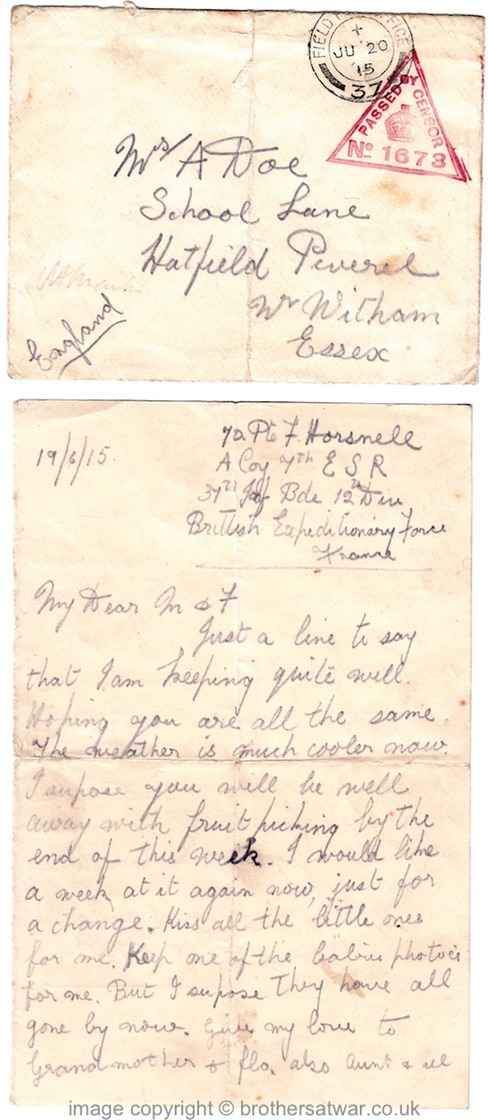 FIELD POST OFFICE
JU 20
15
37
PASSED BY CENSOR
No 1673
Mrs A Doe
School Lane
Hatfield Peverel
Nr Witham
Essex
England
19/6/15.
Pte F. Horsnell
A Coy 7th E S R
Inf Bde 12th Div
British Expeditionary Force
France
My Dear M & F
Just a line to say
that I am keeping quite well.
Hoping you are all the same.
The weather is much cooler now.
I supose you will be well
away with fruit picking by the
end of this week. I would like
a week at it again now, just for
a change. Kiss all the little ones
for me. Keep one of the babies photo's
for me. But I supose they have all
gone by now. Give my love to
Grandmother & flo. also Aunt &
image copyright © brothersatwar.co.uk